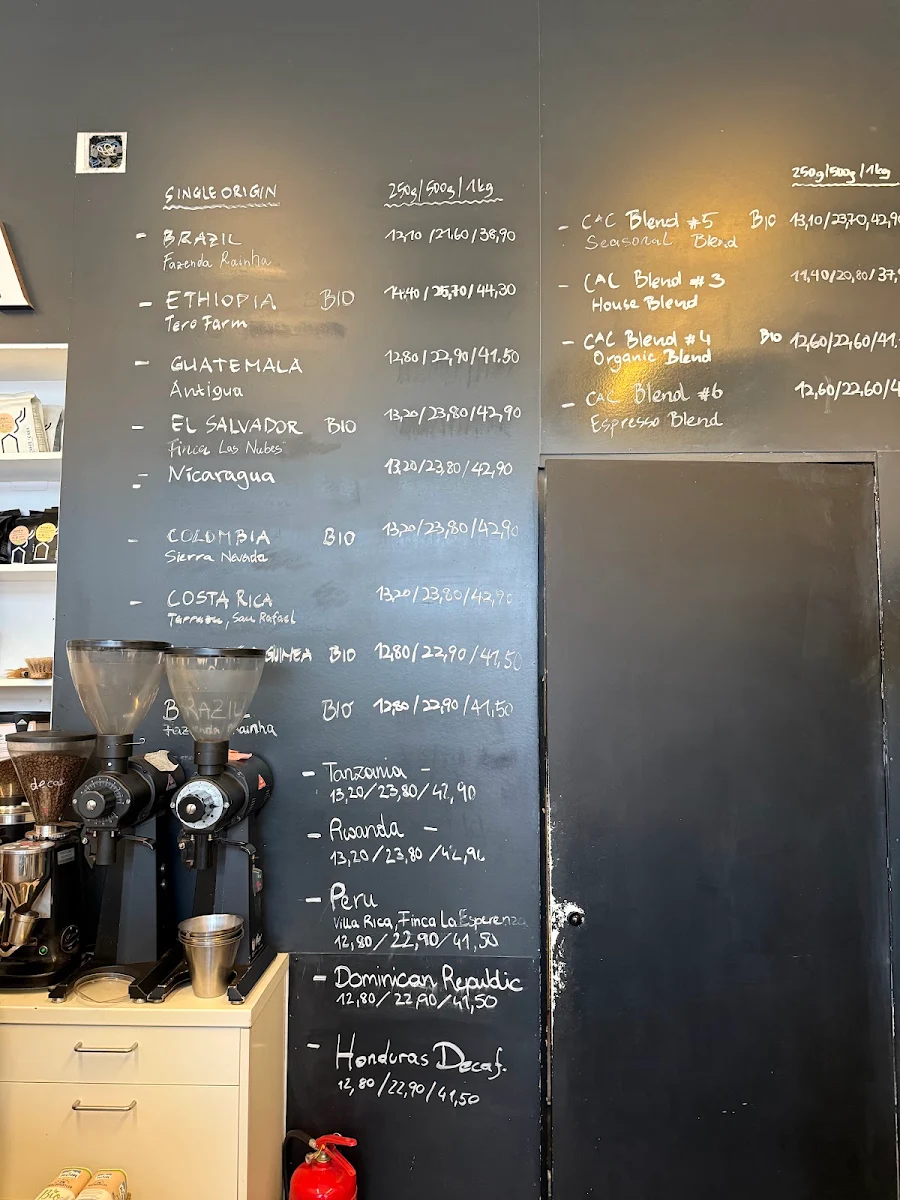 SINGLE ORIGIN 250g/500g/1kg
- BRAZIL 12,10/21,60/38,90
Fazenda Rainha
- ETHIOPIA BIO 14.40/26,70/44,30
Tero Farm
- GUATEMALA 12,80/22,90/41.50
Antigua
- EL SALVADOR BIO 13,20/23,80/42,90
Finca Las Nubes
- Nicaragua 13,20/23,80/42,90
- COLOMBIA BIO 13,20/23,80/42,90
Sierra Nevada
- COSTA RICA 13,20/23,80/42,90
Tarrazu, San Rafael
GUINEA BIO 12,80/22,90/41,50
BRAZIL BIO 12,80/22,90/41,50
Fazenda Rainha
- Tanzania -
13,20/23,80/42,90
- Rwanda -
13,20/23,80/42,90
- Peru
Villa Rica, Finca La Esperenza
12,80/22,90/41,50
- Dominican Republic
12,80/22,90/41,50
- Honduras Decaf.
12,80/22,90/41,50
250g/500g/1kg
- CAC Blend #5 BIO 13,10/23,70/42,90
Seasonal Blend
- CAC Blend #3 11,40/20,80/37,
House Blend
- CAC Blend #4 Bio 12,60/22,60/41.
Organic Blend
- CAC Blend #6 12,60/22,60/4
Espresso Blend
decaf